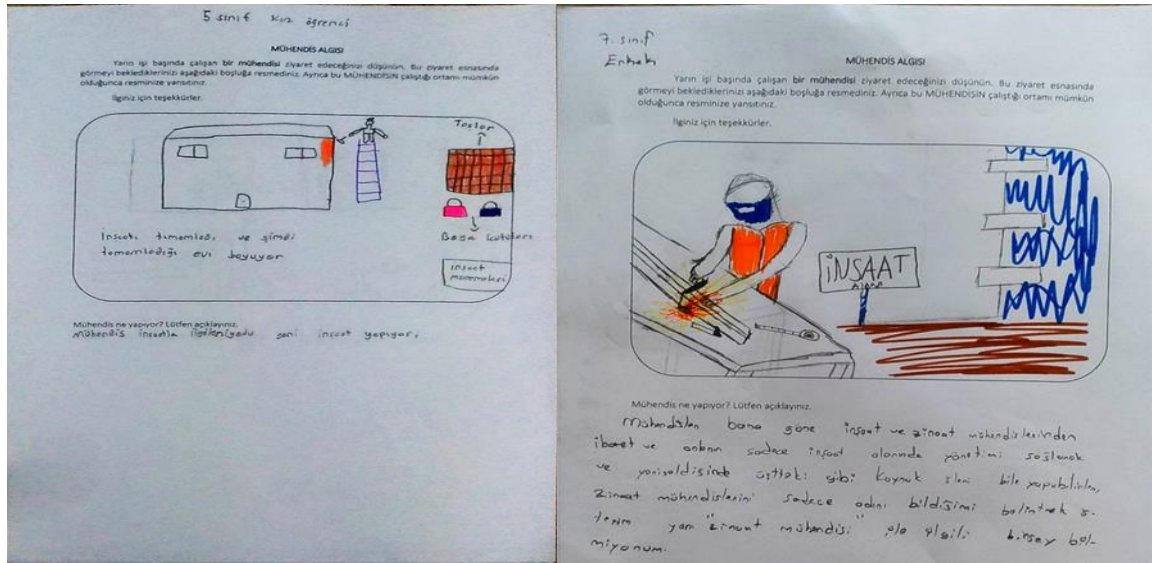 5 sınıf kız öğrenci
MÜHENDİS ALGISI
Yarın işi başında çalışan bir mühendisi ziyaret edeceğinizi düşünün. Bu ziyaret esnasında
görmeyi beklediklerinizi aşağıdaki boşluğa resmediniz. Ayrıca bu MÜHENDİSİN çalıştığı ortamı mümkün
olduğunca resminize yansıtınız.
İlginiz için teşekkürler.
Taşlar
Boya kutuları
inşaat
malzemeleri
İnşaatı tamamladı ve şimdi
tamamladığı evi boyuyor
Mühendis ne yapıyor? Lütfen açıklayınız.
Mühendis inşaatla ilgileniyodu yani inşaat yapıyor.
7. sınıf
Erkek
MÜHENDİS ALGISI
Yarın işi başında çalışan bir mühendisi ziyaret edeceğinizi düşünün. Bu ziyaret esnasında
görmeyi beklediklerinizi aşağıdaki boşluğa resmediniz. Ayrıca bu MÜHENDİSİN çalıştığı ortamı mümkün
olduğunca resminize yansıtınız.
İlginiz için teşekkürler.
İNŞAAT
Mühendis ne yapıyor? Lütfen açıklayınız.
Mühendisler bana göre inşaat ve ziraat mühendislerinden
ibaret ve onların sadece inşaat alanında yönetimi sağlamak
ve üstteki gibi kaynak işleri bile yapabilirler,
ziraat mühendislerini sadece adını bildiğimi belirtmek is-
terim yani "ziraat mühendisi" ile ilgili birşey bil-
miyorum.